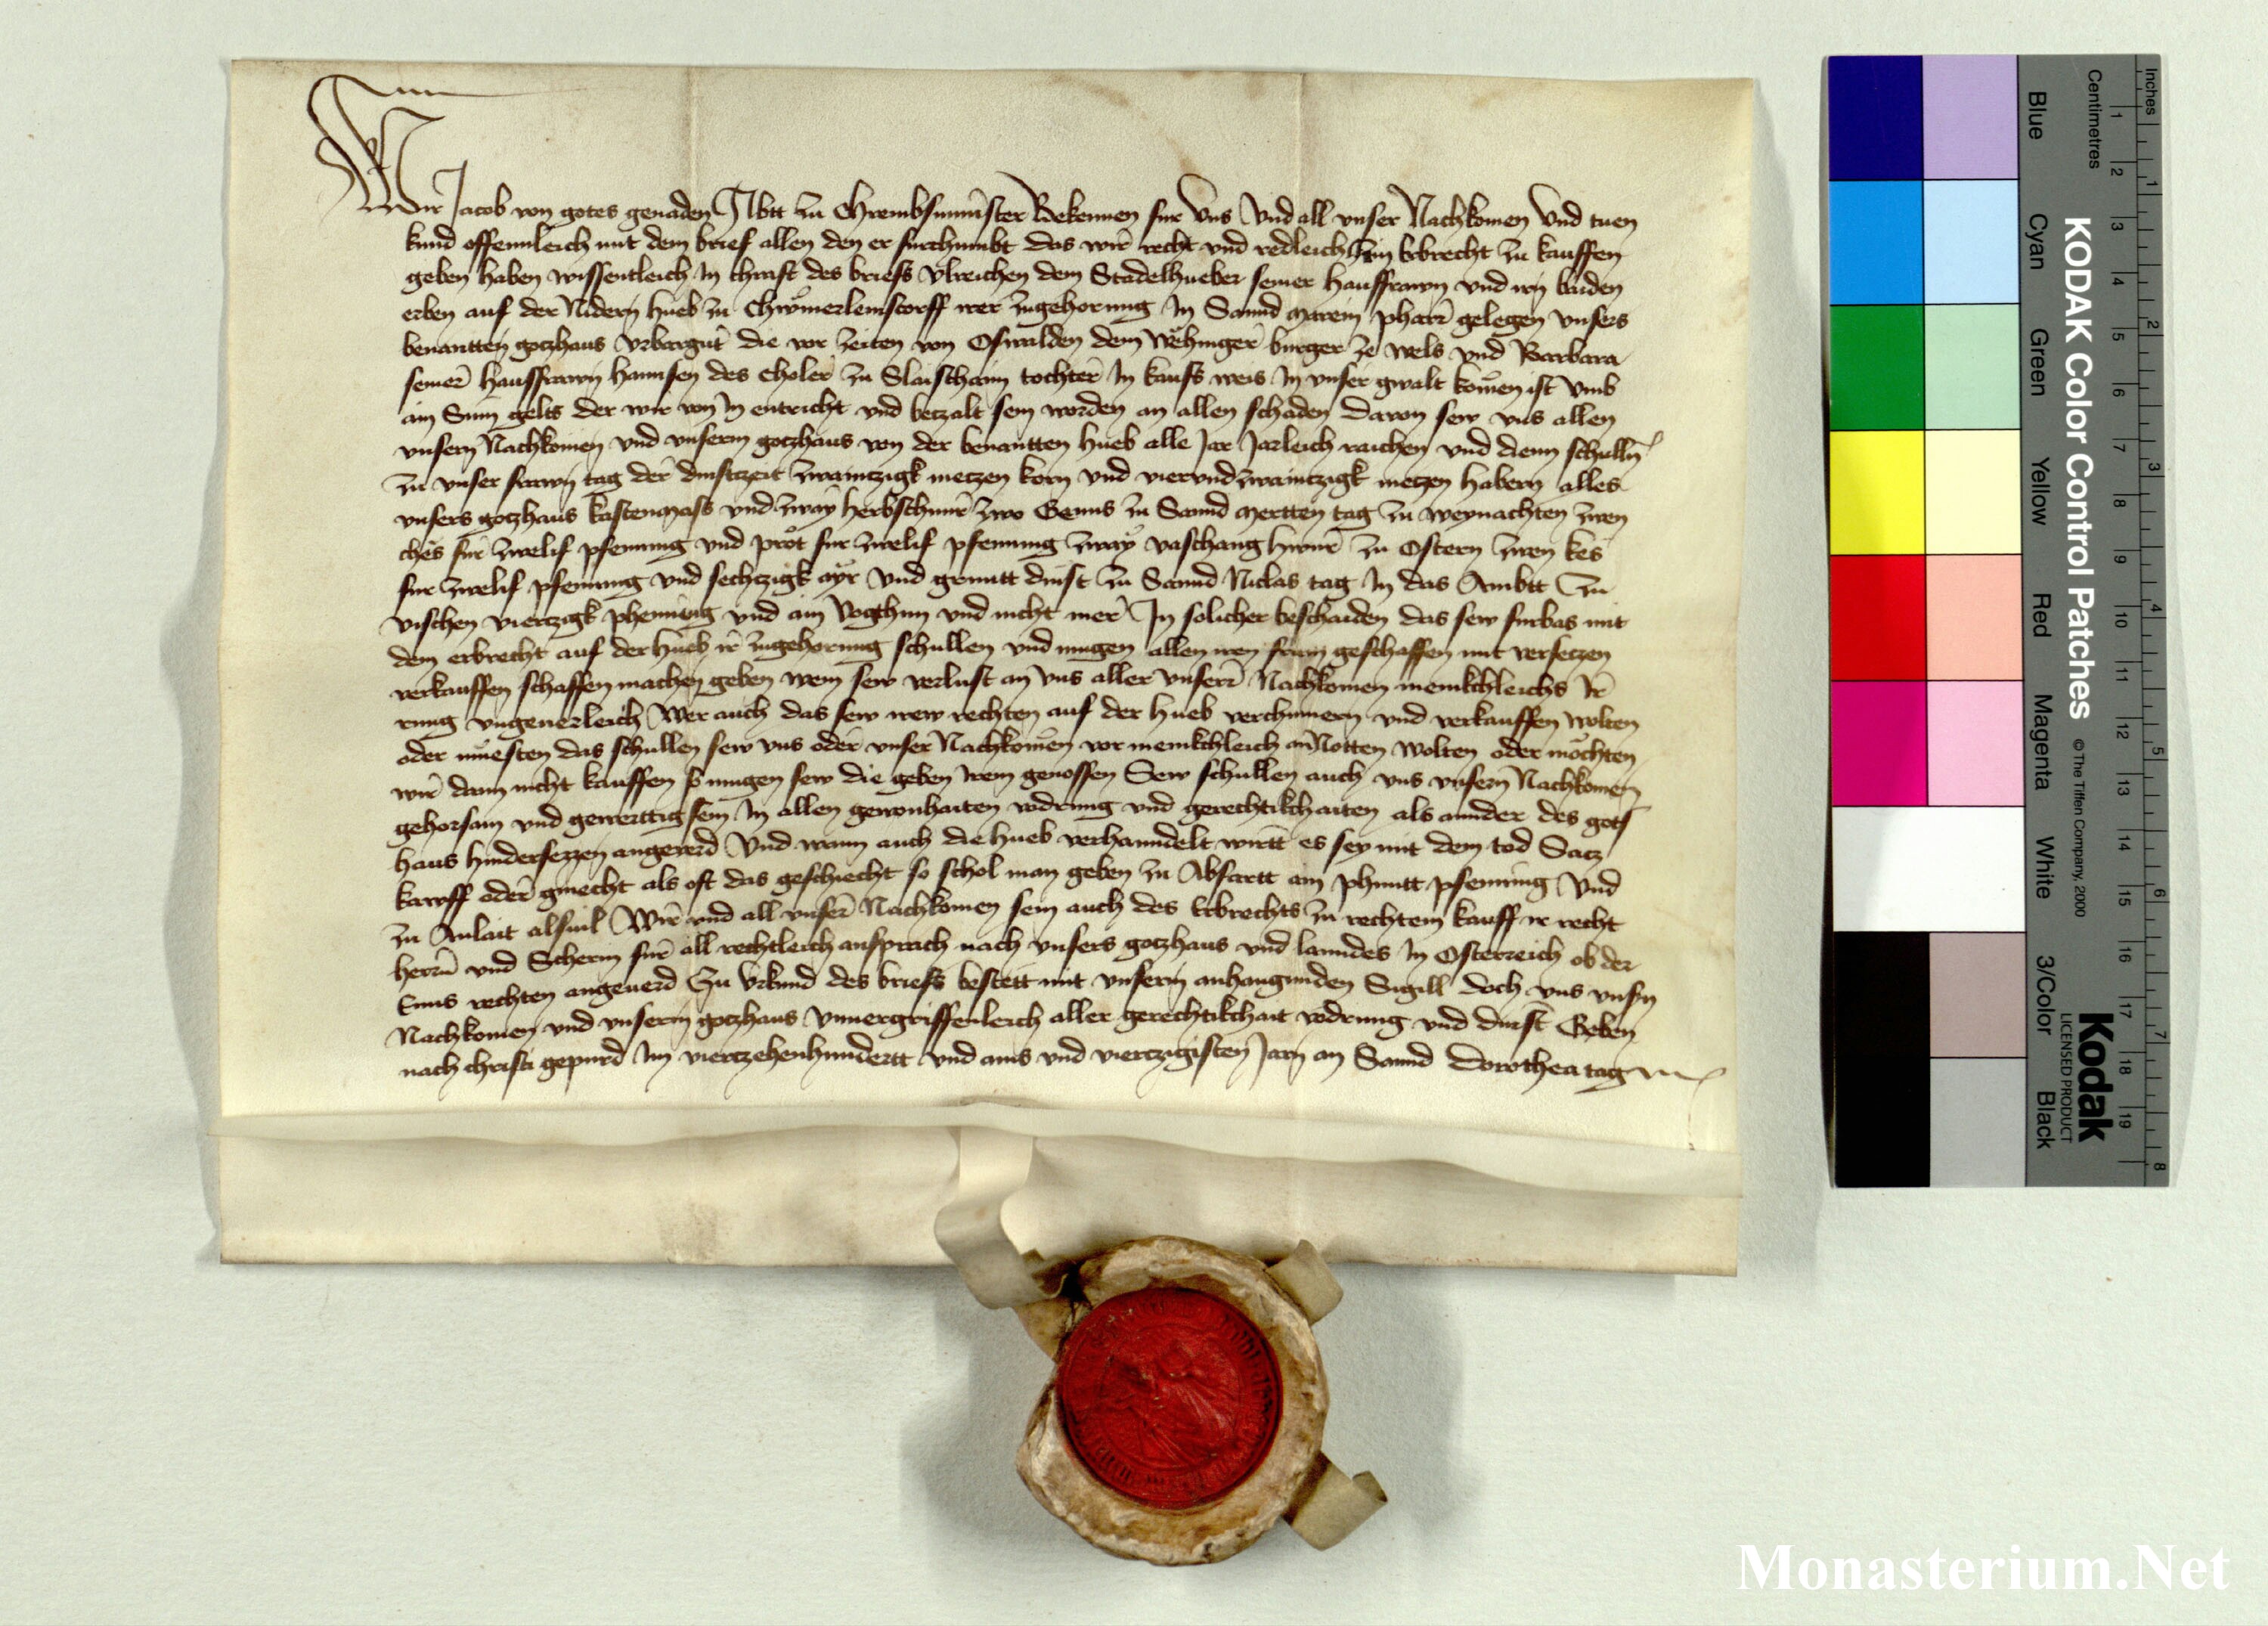 Wir Jacob von gotes genaden Abtt zu Chrembsmunster Bekennen fur Uns Und all unser Nachkomen Und tuen
kund offennleich mit dem brief allen den er furchumbt das wir recht und redleich zu erbrecht zu kauffen
geben haben wissentleich In chraft des briefs Ulreichen dem Stadelhueber seiner hausfrawn und irn baiden
erben auf der Nidern hueb zu irer zugehorung In Sannd Marein pharr gelegen unsers
benantten gotzhaus urbargut die vor zeiten von Oswalden dem burger ze Wels und Barbara
seiner hausfrawn hannsen des zu tochter In kaufs weis In unser gwalt komen ist umb
ain Sum gelts der wir von In entricht und betzalt sein worden an allen schaden Davon sew uns allen
unsern Nachkomen und unserm gotzhaus von der benantten hueb alle Jar Jarleich raichen und dienn schulln
zu unser frawn tag der dinstzeit zwaintzigk metzen korn und vierundzwaintzigk metzen habern alles
unsers gotzhaus kastenmass und zway herbschunr zwo Genns zu Sannd Mertten tag zu weynachten zwen
ches fur zwelif pfenning und prot fur zwelif pfenning zway vaschanghunr zu Ostern zwen kes
fur zwelif pfenning und sechtzigk ayr Und dinst zu Sannd Niclas tag In das Ambtt zu
vischen viertzigk phenning und ain Vogthun und nicht mer In solicher beschaiden das sew furbas mit
dem erbrecht auf der hueb ir zugehorung schullen und mugen allen iren frum geschaffen mit versetzen
verkauffen schaffen machen geben wem sew verlust an uns aller unserr Nachkomen menikchleichs Ir
rung ungeverleich Wer auch das sew irew rechten auf der hueb verchumern und verkauffen wolten
oder muesten das schullen sew uns oder unser Nachkomen vor menikchleich wolten oder mochten
wir dann nicht kauffen so mugen sew die geben Irem genossen Sew schullen auch uns unsern Nachkomen
gehorsam und gewerttig sein In allen gewonhaiten vodrung und gerechtikchaiten als annder des gots
haus hindersezzen angeverd Und wann auch die hueb verhanndelt wirtt es sey mit dem tod Satz
kawff oder gmecht als oft das geschiecht so schol man geben zu Abfartt ain phuntt pfenning Und
zu Anlait alsvil Wir und all unser Nachkomen sein auch des Erbrechts zu rechtem kauff ir recht
herrn und Scherm fur all rechtleich ansprach nach unsers gotzhaus und lanndes In Osterreich ob der
Enns rechten angeverd Zu Urkund des briefs bestett mit unserm anhangunden Sigill doch uns unsern
Nachkomen und unserm gotzhaus Unvergriffenleich aller gerechtikchait vodrung und dinst Geben
nach christi gepurd Im viertzehenhundertt und ains und viertzigisten Jarn an Sannd Dorothea tag
Inches
Centimetres
1 2 3 4 5 6 7 8 9 10 11 12 13 14 15 16 17 18 19
1 2 3 4 5 6 7 8
KODAK Color Control Patches © The Tiffen Company, 2000
Kodak
LICENSED PRODUCT
Blue Cyan Green Yellow Red Magenta White 3/Color Black
Monasterium.Net